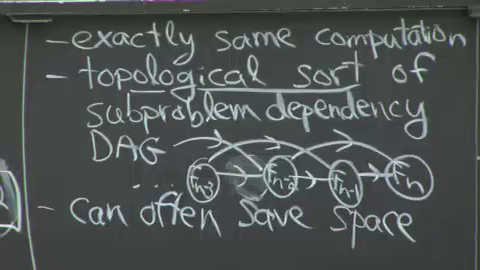 - exactly same computation
- topological sort of
subproblem dependency
DAG
... Fn-3 Fn-2 Fn-1 Fn
- can often save space